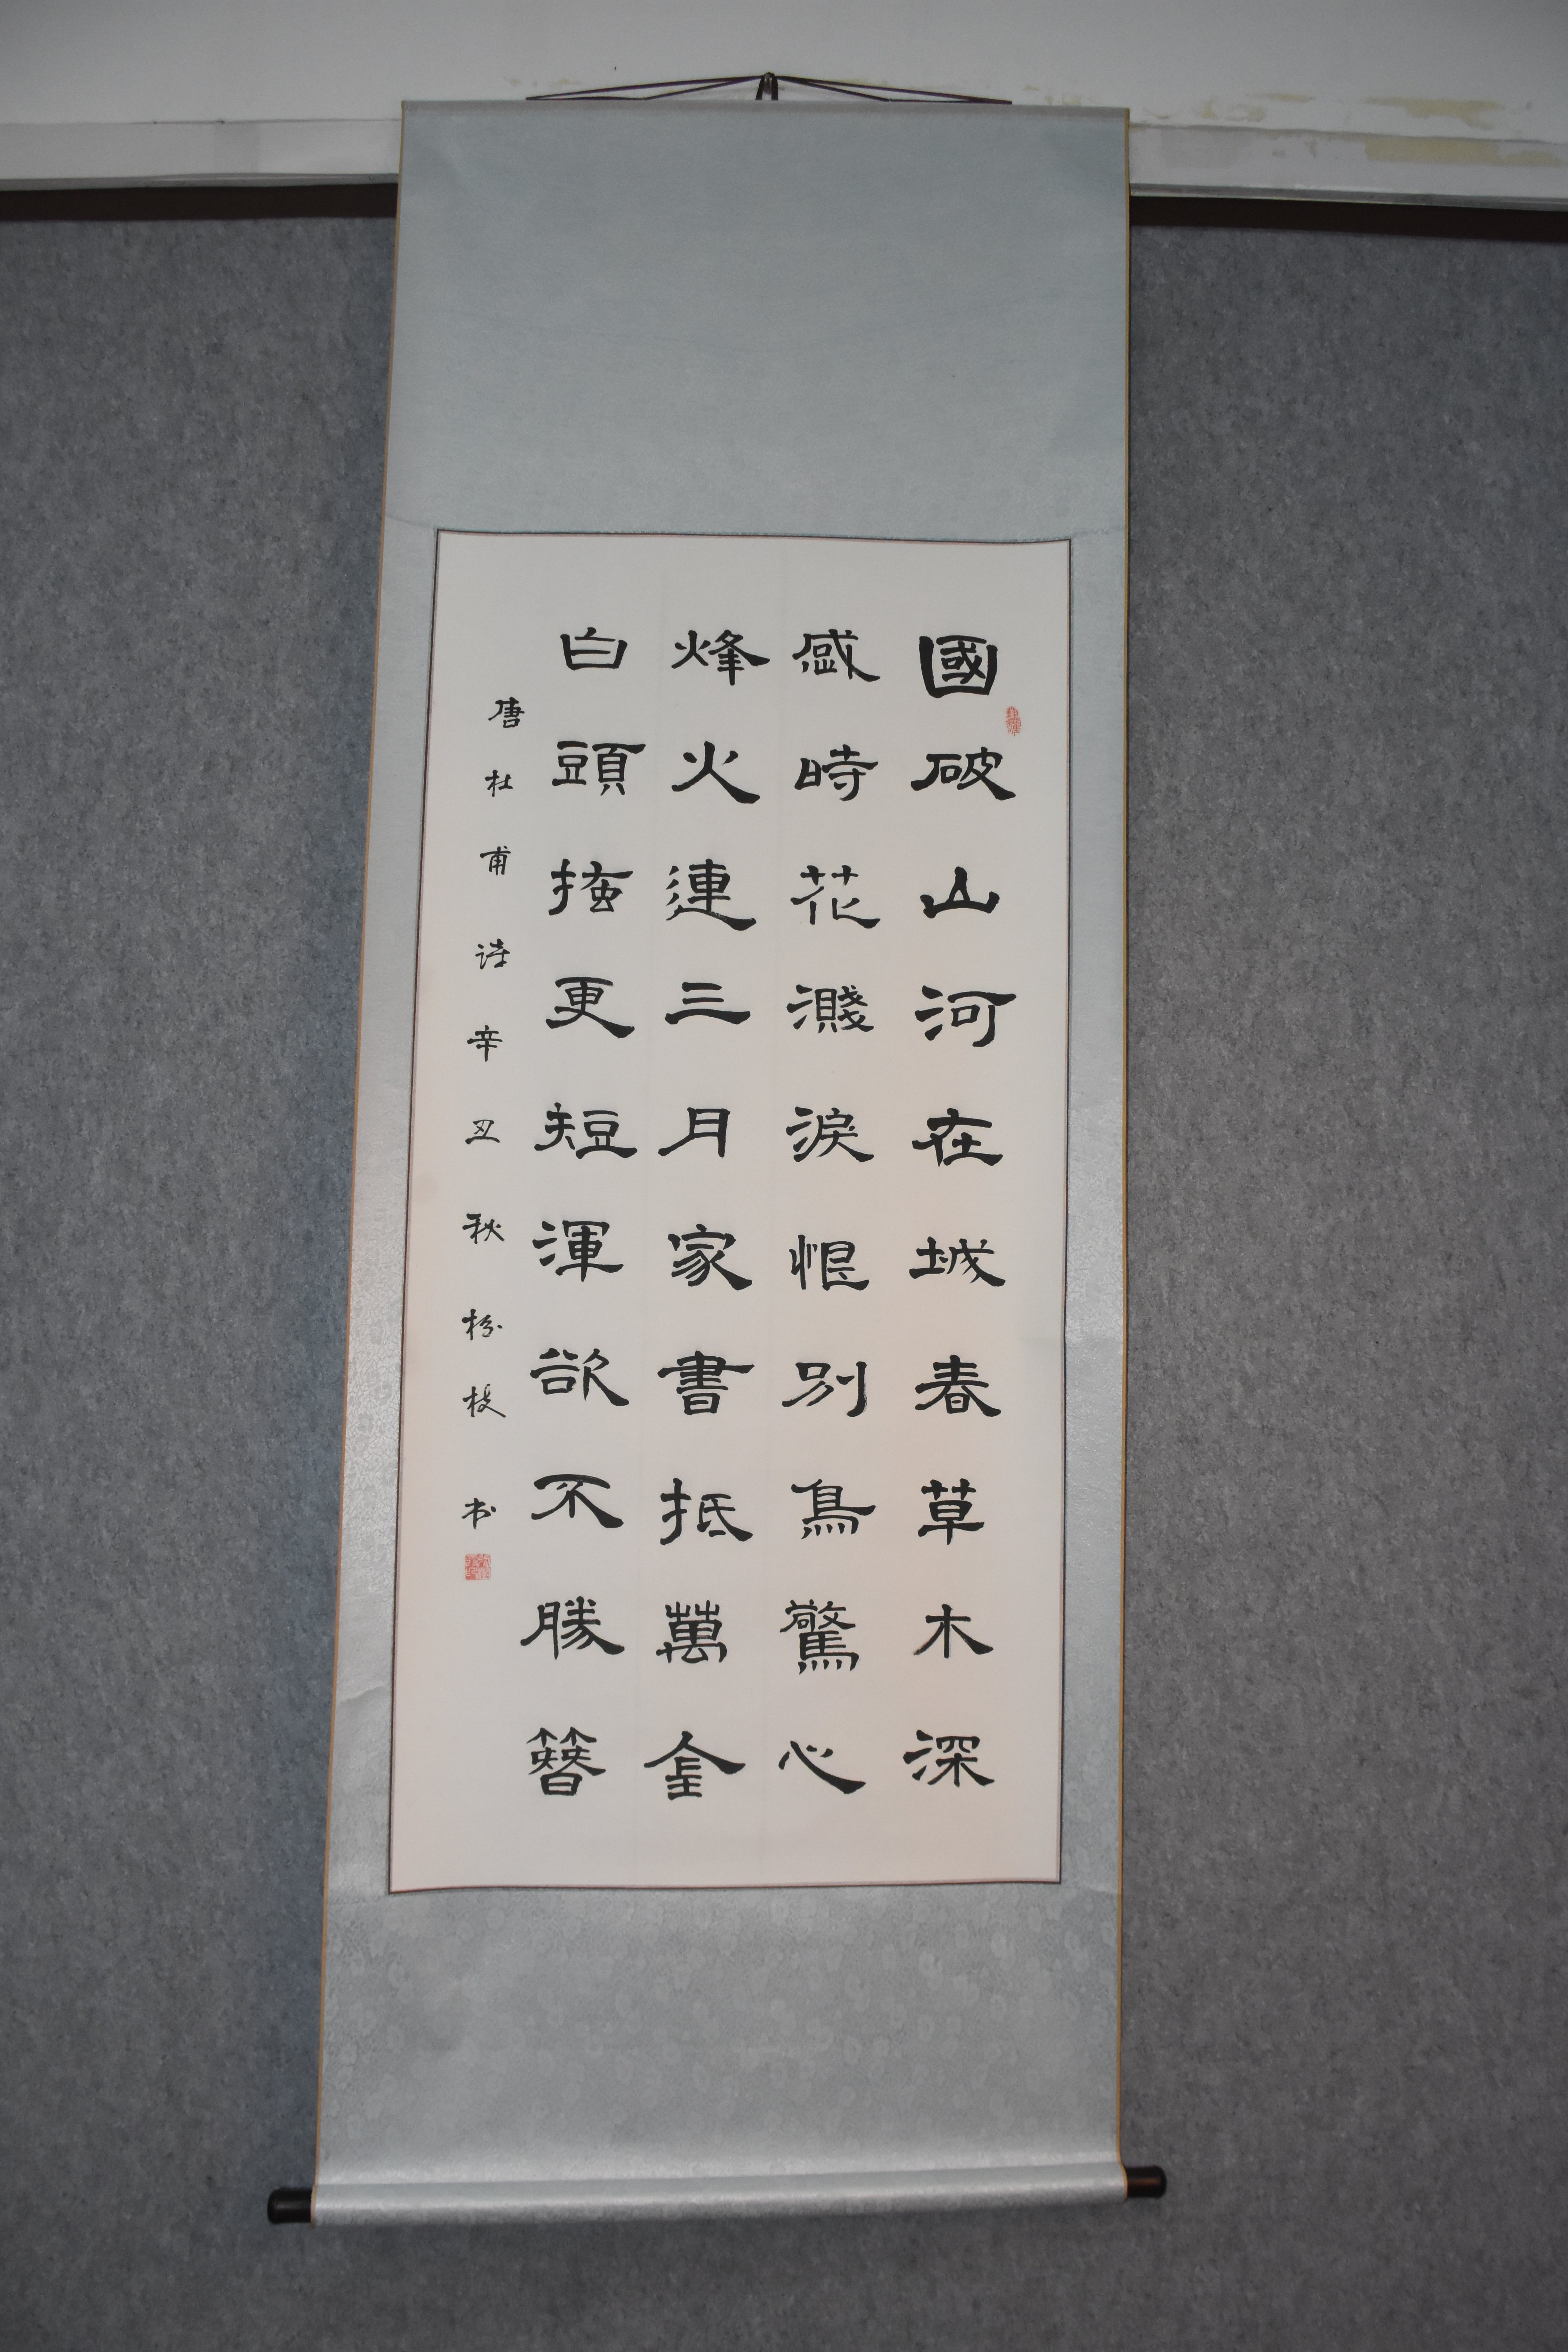 國破山河在城春草木深
感時花濺淚恨別鳥驚心
烽火連三月家書抵萬金
白頭搔更短渾欲不勝簪
唐杜甫诗辛丑秋枌枝书